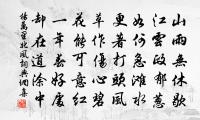 山雨無休歇
江雲政郁葱
如何急灘水
更著打頭風
草作傷心碧
花能可意紅
一年春好處
却在道涂中
楊萬里北風詞典網集